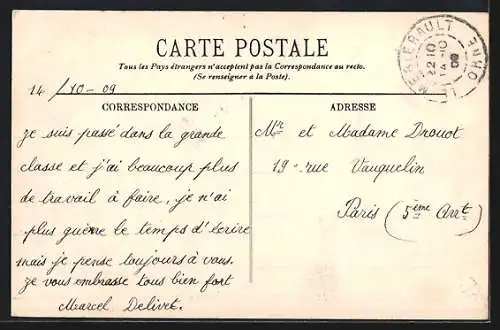 CARTE POSTALE
Tous les Pays étrangers n'acceptent pas la Correspondance au recto.
(Se renseigner à la Poste).
14/10-09
CORRESPONDANCE
je suis passé dans la grande
classe et j'ai beaucoup plus
de travail à faire, je n'ai
plus guère le temps d'écrire
mais je pense toujours à vous.
je vous embrasse tous bien fort
Marcel Delivet.
ADRESSE
Mr et Madame Drouot
19 rue Vauquelin
Paris (5ème Arrt)
MERLERAULT
ORNE
22 10
14-10
09